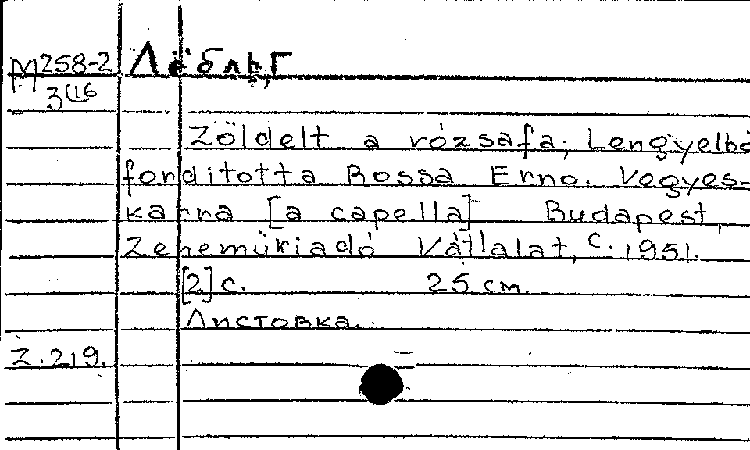 М258-2 Лёбль, Г
3(16
Zöldelt a rózsafa; Lengyelbő
fordította Rossa Erno. Vegyes-
karra [a capella] Budapest,
Zeneműkiadó Vállalat, c. 1951.
[2] с. 25 см.
Листовка.
Z.219.